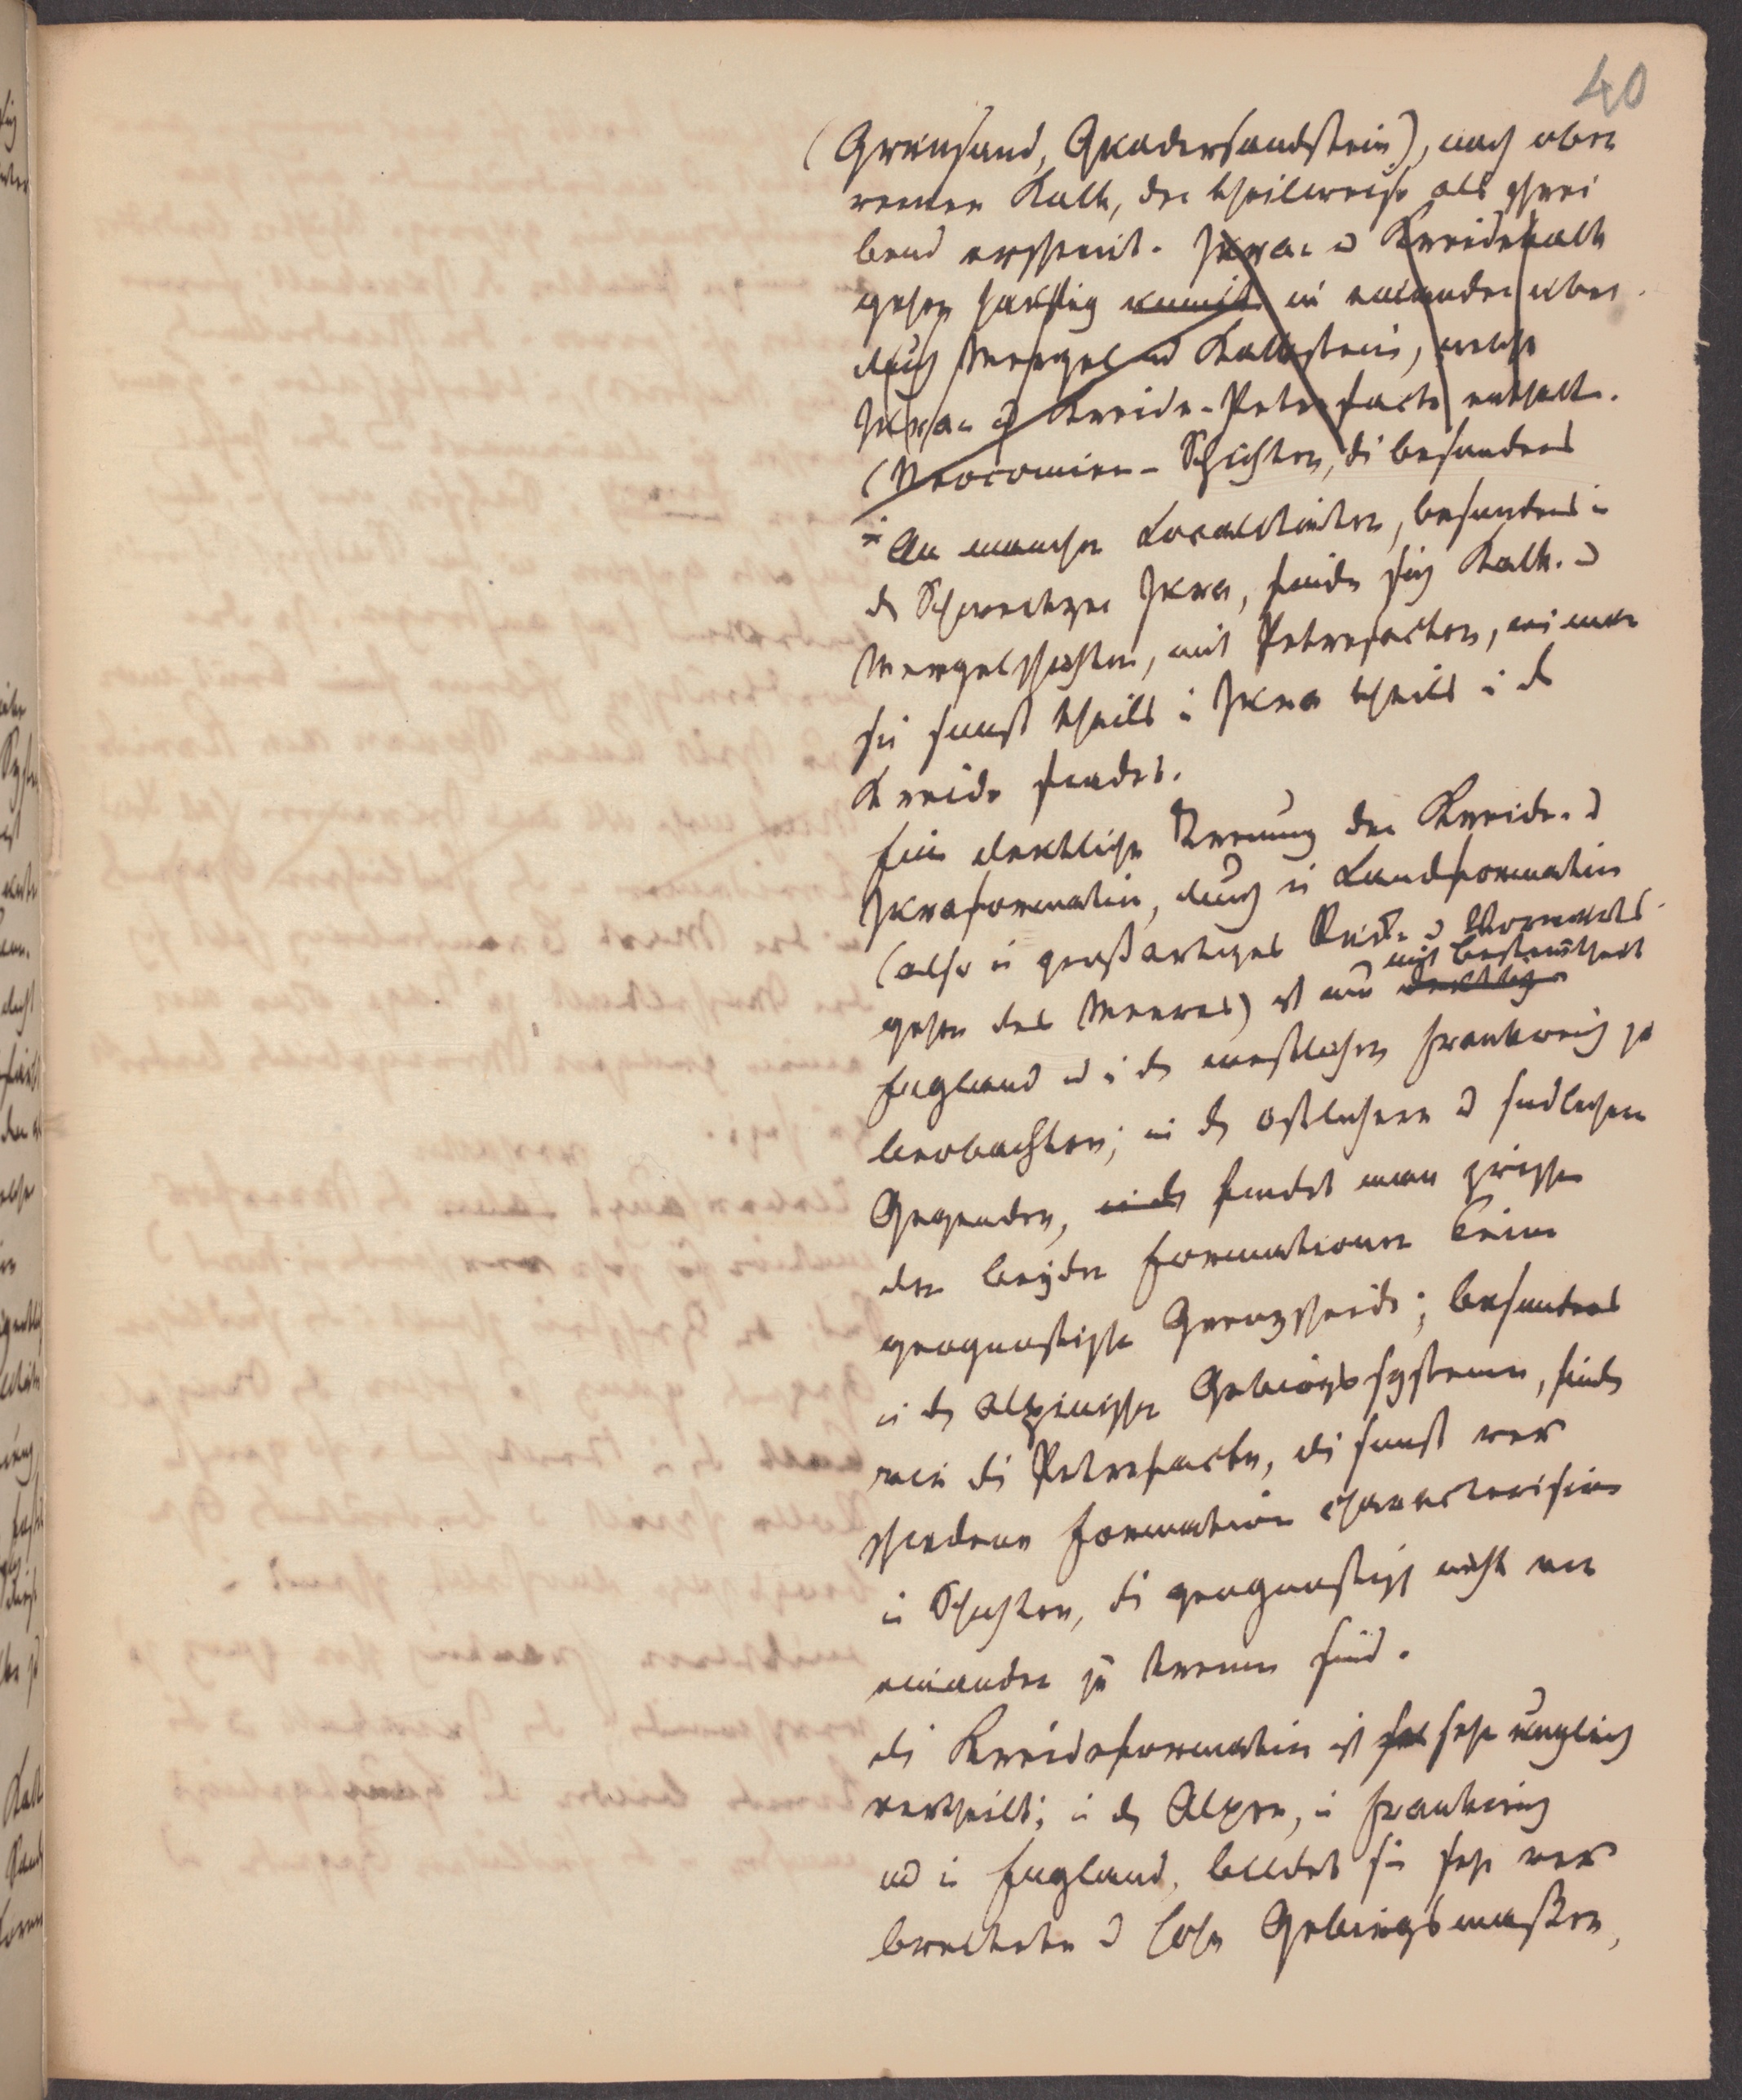 40
(Grünsand, Quadersandstein), nach oben
reiner Kalk, der theilweise als schrei
bend erscheint. Jura- u Kreidekalk
gehen häufig in einander über
durch Mergel u Kalkstein, welche
Jura- u Kreide-Petrefacte enthalt.
(Neocomien-Schichten, di besonders
An manchen Localitäten, besonders i
d Schweitzer Jura, finde sich Kalk- u
Mergelschichten, mit Petrefacten, wi man
sie sonst theils i Jura theils i d
Kreide findet.
Ein deutliche Trennung der Kreide- u
Juraformation, durch ei Landformation
(also ei großartiges Rück- u Vorwärts-
mit Bestimtheit
gehen des Meeres) ist nur deutlich
England u i d westlichen Frankreich zu
beobachten; in d ostlichern u sudlichern
Gegenden, findet man zwischen
den beyden Formationen keine
geognostische Grenzscheide; besonders
i d alpinischen Gebirgssystemen, finde
sich di Petrefacte, di sonst ver
schiedene Formation characterisiren
i Schichten, di geognostisch nicht von
einander zu trennen sind.
di Kreideformation ist sehr ungleich
vertheilt; i d Alpen, i Frankreich
ud i England, bildet sie sehr ver
breitete u hohe Gebirgsmaßen,